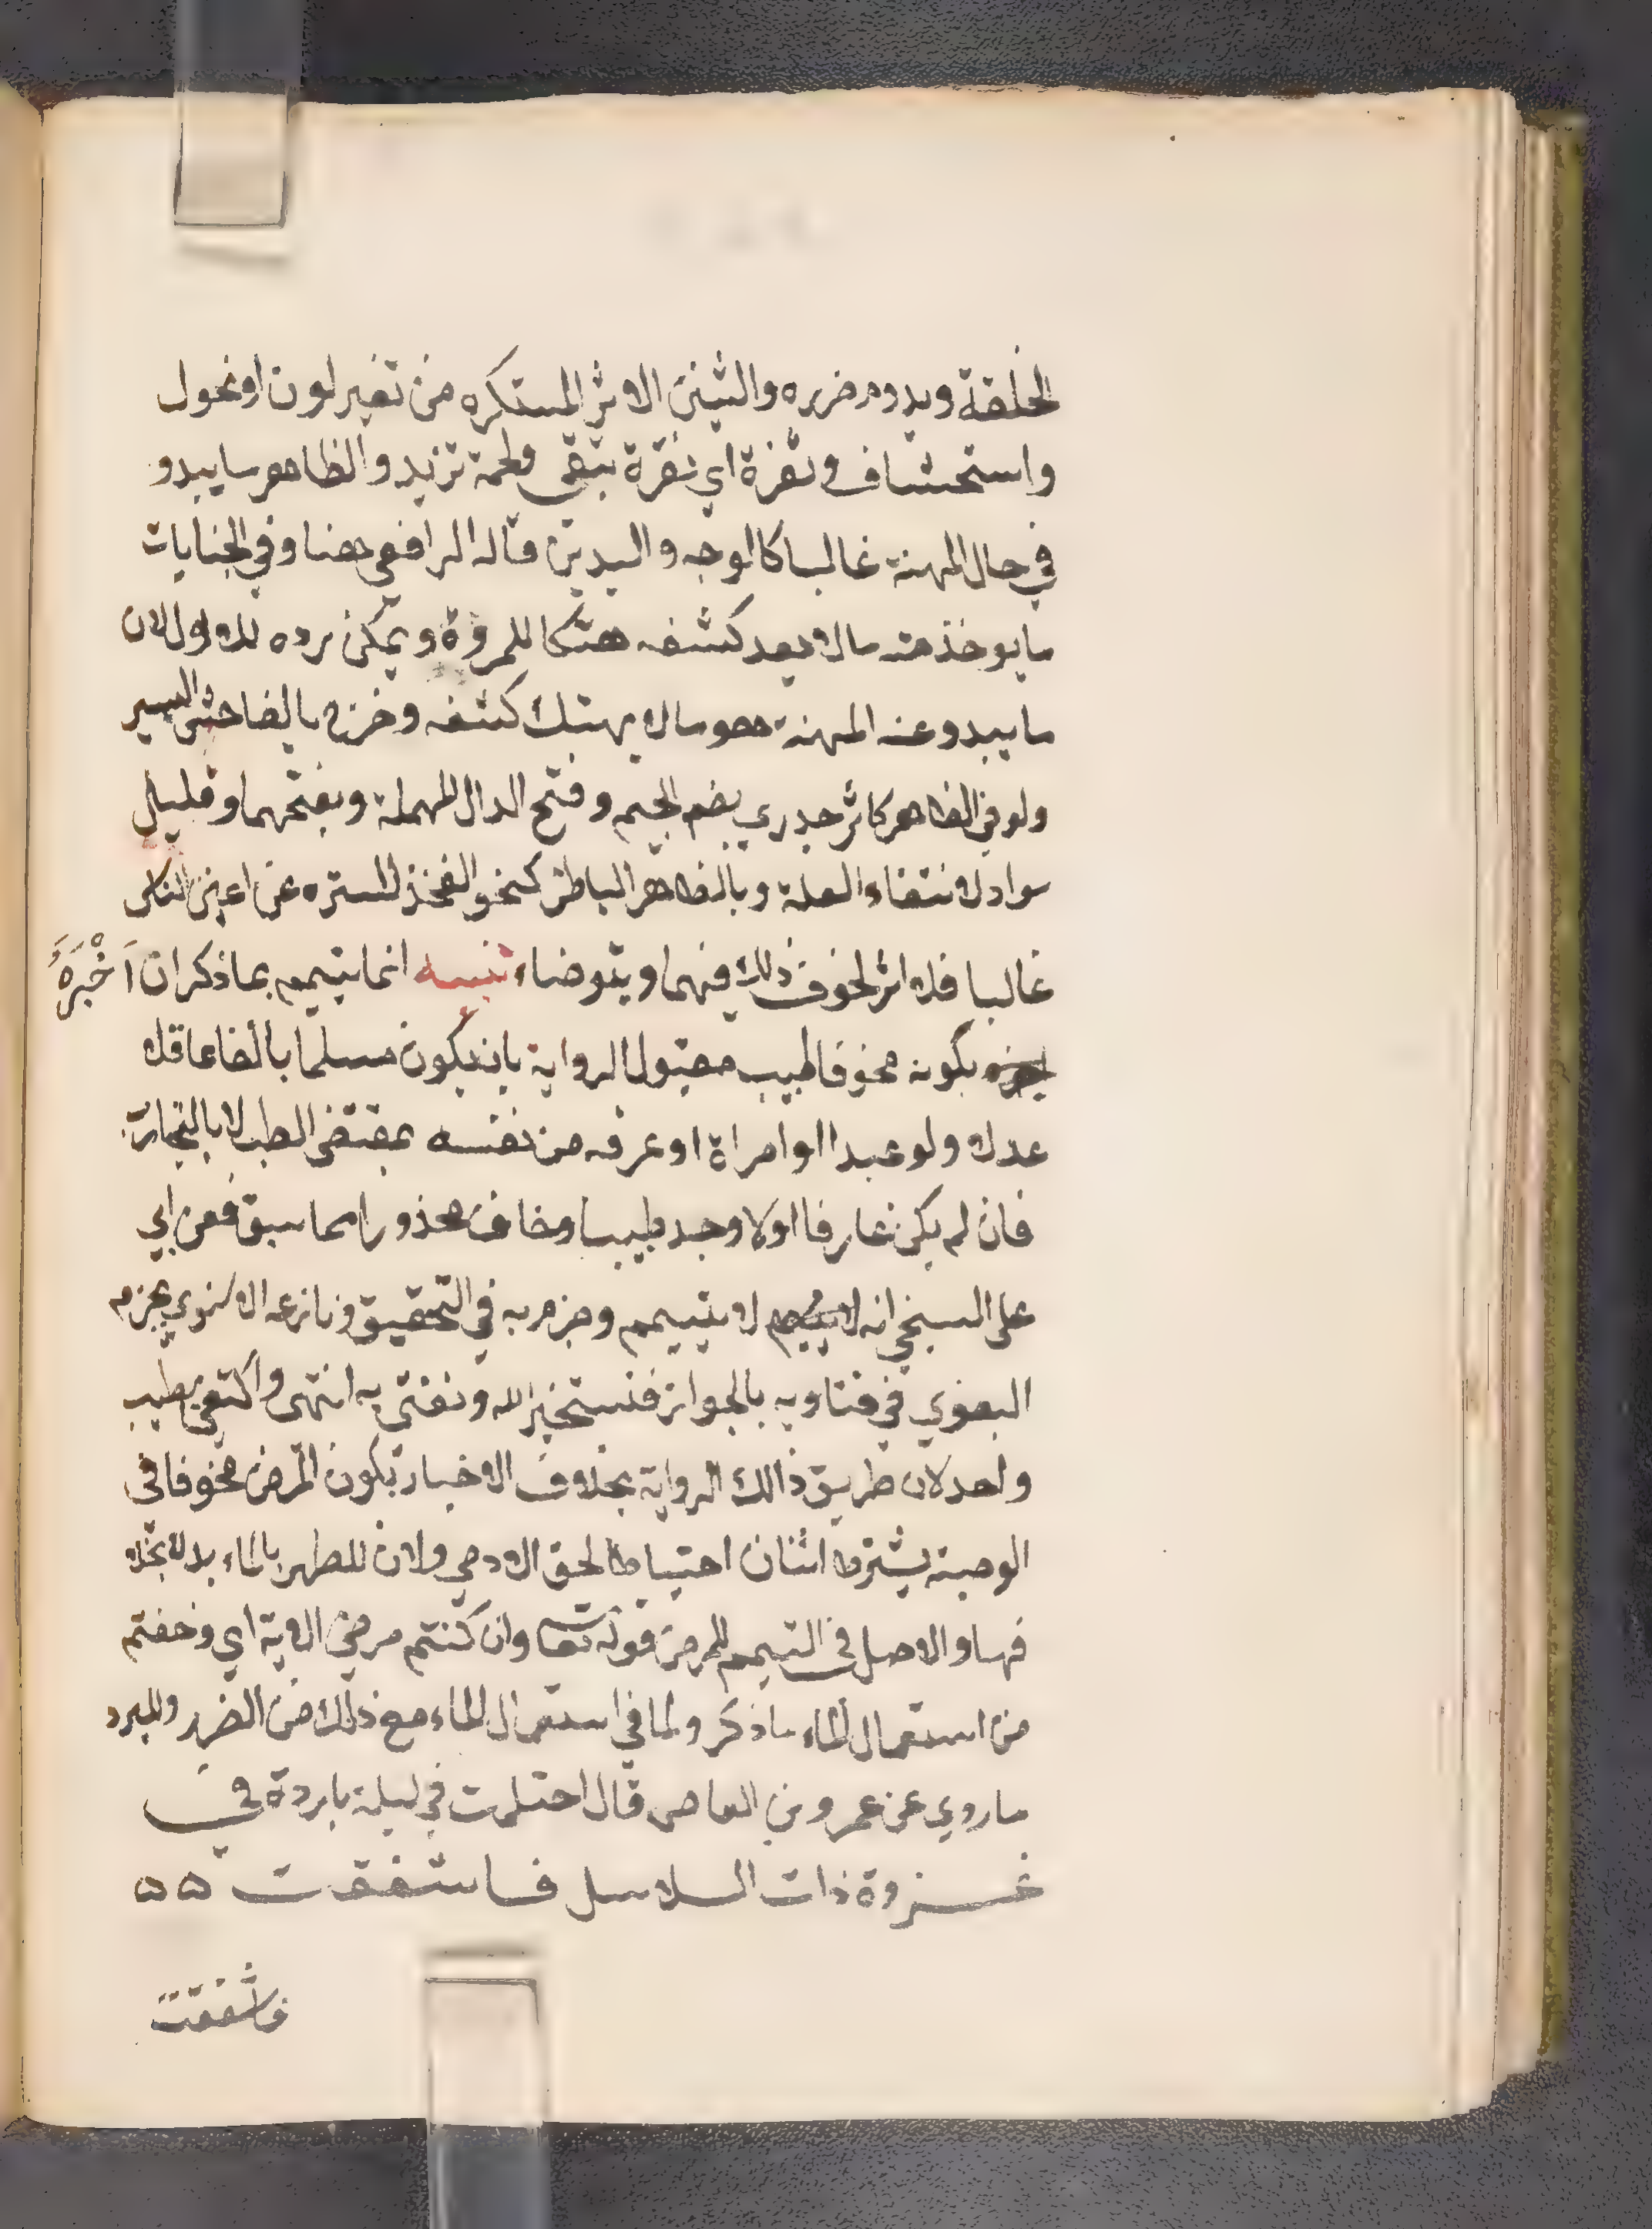 الخلقة ويدوم ضرره والشين الاثر المستكره من تغير لون او نحول
واستحشاف وثغرة اي نقرة تبقى ولحمة تزيد والظاهر ما يبدو
في حال المهنة غالبا كالوجه واليدين قاله الرافعي هنا وفي الجنايات
ما يوخذ منه مالا يعد كشفه هتكا للمروة ويمكن رده للاول لان
ما يبدو عند المهنة هو مالا يهتك كشفه وخرج بالفاحش اليسير
ولو في الظاهر كاثر جدري بضم الجيم وفتح الدال المهملة وبفتحهما وقليل
سواد لانتفاء العلة وبالظاهر الباطن كنحو الفخذ لستره عن اعين الناس
غالبا فلا اثر لخوف ذلك فيهما ويتوضاء تنبيه انما يتيمم بما ذكر ان اَخْبَرَهُ
بكونه مخوفا طبيب مقبول الرواية بان يكون مسلما بالغا عاقلا
عدلا ولو عبدا او امراة او عرفه من نفسه بمقتضى الطب لا بالتجارب
فان لم يكن عارفا اولا وجد طبيبا وخاف محذورا مما سبق فعن ابي
على السنجي انه لا يتيمم وجزم به في التحقيق ونازعه الاسنوي بجزم
البغوي في فتاويه بالجواز فنستخير الله ونفتى به انتهى واكتفي بطبيب
واحد لان طريق ذالك الرواية بخلاف الاخبار بكون المرض مخوفا في
الوصية يشترط اثنان احتياطا لحق الادمي ولان للطهر بالماء بدلا بخلا
فها والاصل في التيمم للمرض قوله تعا وان كنتم مرضى الاية اي وخفتم
من استعمال الماء ما ذكر ولما في استعمال الماء مع ذلك من الضرر وللبرد
ما روي عن عمرو بن العاص قال احتلمت في ليلة باردة في
غزوة ذات السلاسل فاشفقت ه ه
فاشفقت